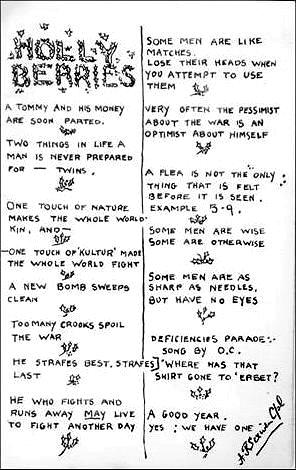 HOLLY
BERRIES
A TOMMY AND HIS MONEY
ARE SOON PARTED.
TWO THINGS IN LIFE A
MAN IS NEVER PREPARED
FOR — TWINS.
ONE TOUCH OF NATURE
MAKES THE WHOLE WORLD
KIN, AND—
—ONE TOUCH OF 'KULTUR' MADE
THE WHOLE WORLD FIGHT
A NEW BOMB SWEEPS
CLEAN
TOO MANY CROOKS SPOIL
THE WAR
HE STRAFES BEST, STRAFES
LAST
HE WHO FIGHTS AND
RUNS AWAY MAY LIVE
TO FIGHT ANOTHER DAY
SOME MEN ARE LIKE
MATCHES.
LOSE THEIR HEADS WHEN
YOU ATTEMPT TO USE
THEM
VERY OFTEN THE PESSIMIST
ABOUT THE WAR IS AN
OPTIMIST ABOUT HIMSELF
A FLEA IS NOT THE ONLY
THING THAT IS FELT
BEFORE IT IS SEEN.
EXAMPLE 5-9.
SOME MEN ARE WISE
SOME ARE OTHERWISE
SOME MEN ARE AS
SHARP AS NEEDLES,
BUT HAVE NO EYES
DEFICIENCIES PARADE:-
SONG BY O.C.
'WHERE HAS THAT
SHIRT GONE TO 'ERBET?
A GOOD YEAR.
YES; WE HAVE ONE
Cpl